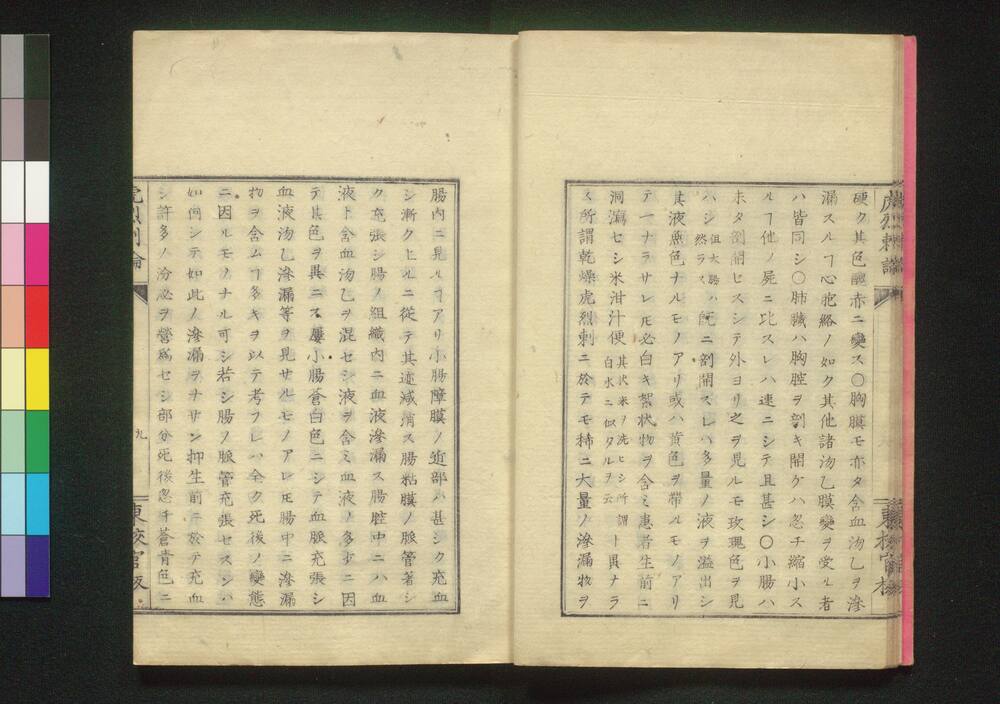 硬ク其色 赤ニ變ス〇胸膜モ亦タ含血沕乙ヲ滲
漏スルヿ心胞絡ノ如ク其他諸沕乙膜變ヲ受ル者
ハ皆同シ〇肺臓ハ胸腔ヲ剖キ開ケハ忽チ縮小ス
ルヿ他ノ屍ニ比スレハ速ニシテ且甚シ〇小腸ハ
未タ剖開ヒスシテ外ヨリ之ヲ見ルモ玫瑰色ヲ見
ハシ但大腸ハ然ラス既ニ剖開スレハ多量ノ液ヲ溢出シ
其液無色ナルモノアリ或ハ黄色ヲ帶ルモノアリ
テ一ナラサレ𪜈必白キ絮状物ヲ含ミ患者生前ニ
洞瀉セシ米泔汁便其状米ヲ洗ヒシ所謂白水ニ似タルヲ云ト異ナラ
ス所謂乾燥虎烈刺ニ於テモ特ニ大量ノ滲漏物ヲ
腸内ニ見ルヿアリ小腸障膜ノ近部ハ甚シク充血
シ漸ク上ルニ從テ其迹減消ス腸粘膜ノ脈管著シ
ク充張シ腸ノ組織内ニ血液滲漏ス腸腔中ニハ血
液ト含血沕乙ヲ混セシ液ヲ含ミ血液ノ多少ニ因
テ其色ヲ異ニス屢小腸蒼白色ニシテ血脈充張シ
血液沕乙滲漏等ヲ見サルモノアレ𪜈腸中ニ滲漏
物ヲ含ムヿ多キヲ以テ考フレハ全ク死後ノ變態
ニ因ルモノナル可シ若シ腸ノ脈管充張セスンハ
如何シテ如此ノ滲漏ヲナサン抑生前ニ於テ充血
シ許多ノ分泌ヲ營爲セシ部分死後忽チ蒼青色ニ
九